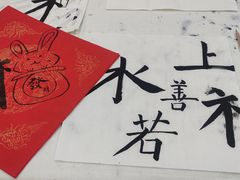 上善若水
發